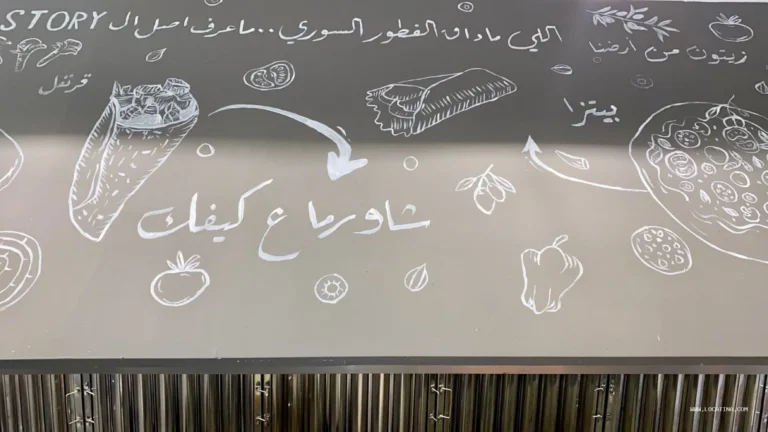 اللي ماداق الفطور السوري .. ماعرف اصل ال STORY
زيتون من أرضنا
قرنفل
بيتزا
شاورما ع كيفك
WWW.LOCATINA.COM